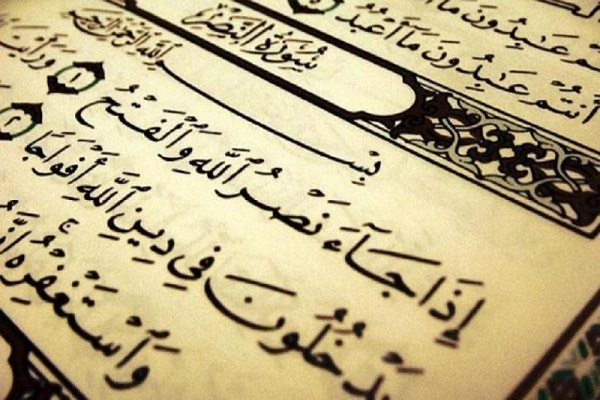 عَـٰبِدُونَ مَآ
أَنتُمْ عَـٰبِدُونَ مَآ أَعْبُدُ ٥
سُورَةُ النَّصْرِ
بِسْمِ ٱللَّهِ ٱلرَّحْمَـٰنِ ٱلرَّحِيمِ
إِذَا جَآءَ نَصْرُ ٱللَّهِ وَٱلْفَتْحُ ١ وَرَأَيْتَ
يَدْخُلُونَ فِي دِينِ ٱللَّهِ أَفْوَاجًا ٢
وَٱسْتَغْفِرْهُ